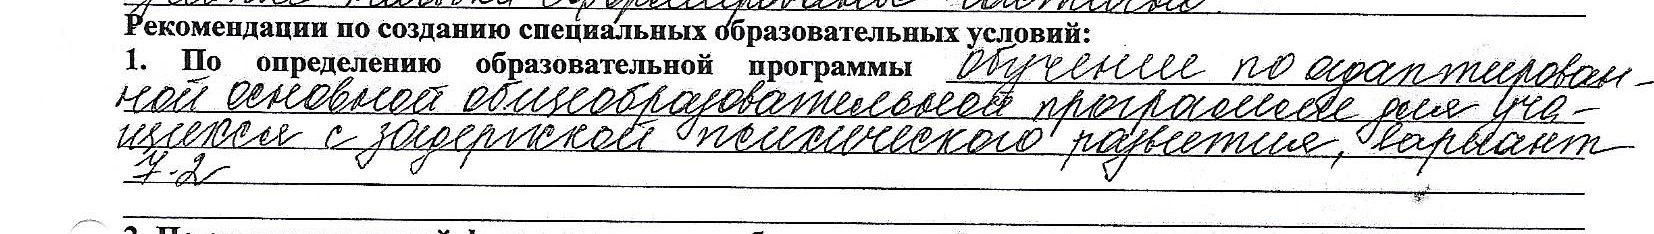 Рекомендации по созданию специальных образовательных условий:
1. По определению образовательной программы обучение по адаптирован-
ной основной общеобразовательной программе для уча-
щихся с задержкой психического развития, вариант
7.2